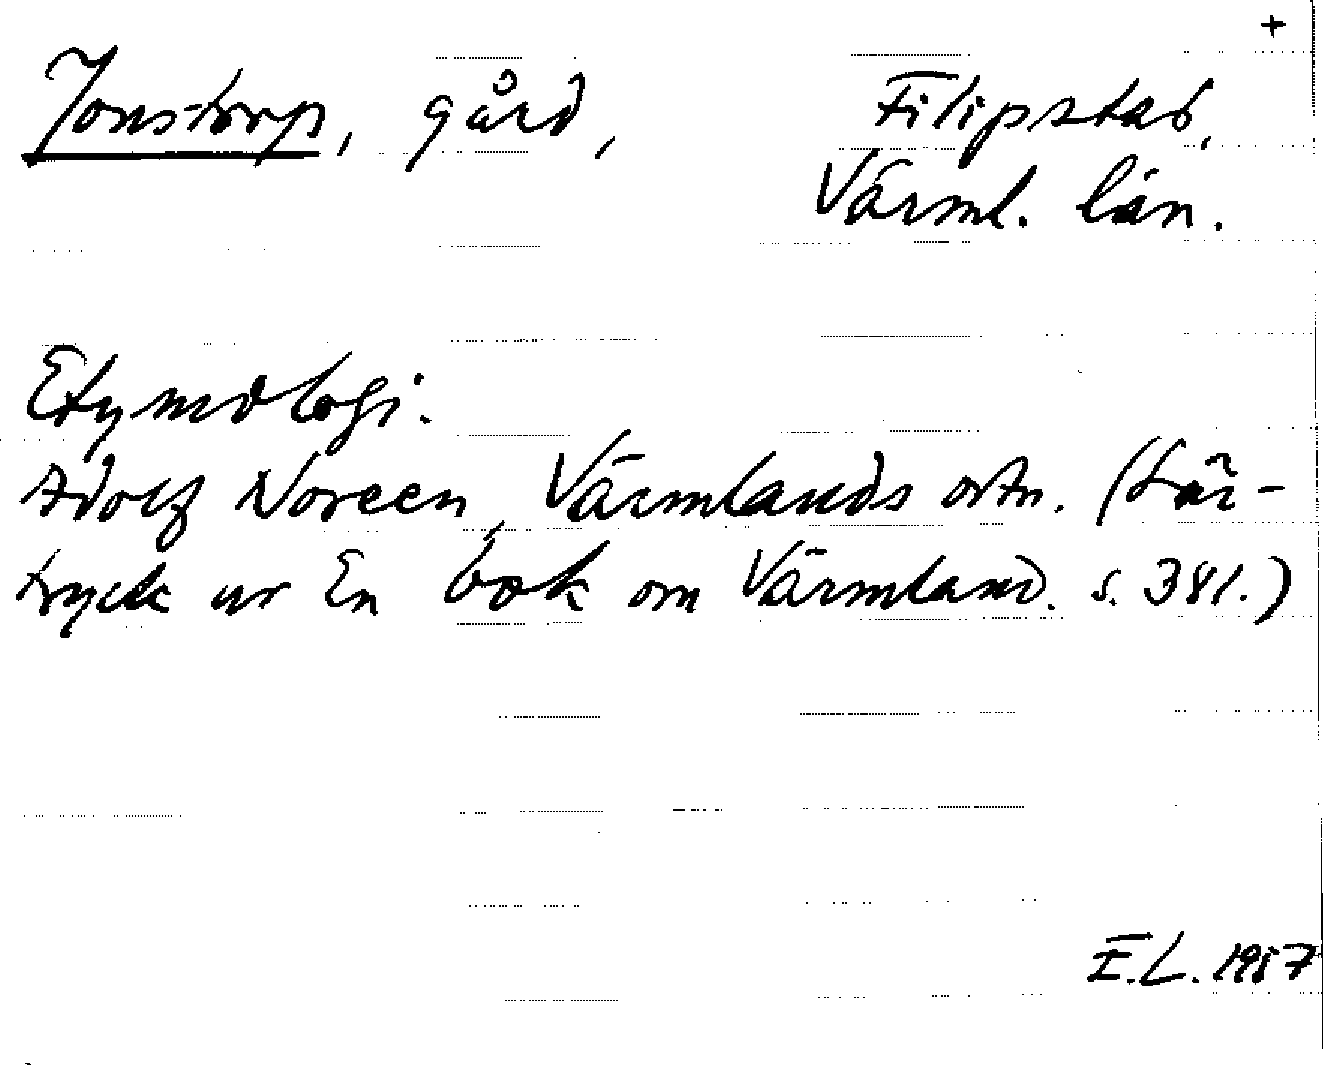 +
Jonstorp, gård, Filipstad,
Värml. län.
Etymologi.
Adolf Noreen, Värmlands ortn. (Sär-
tryck ur En bok om Värmland. s. 381.)
E.L. 1957